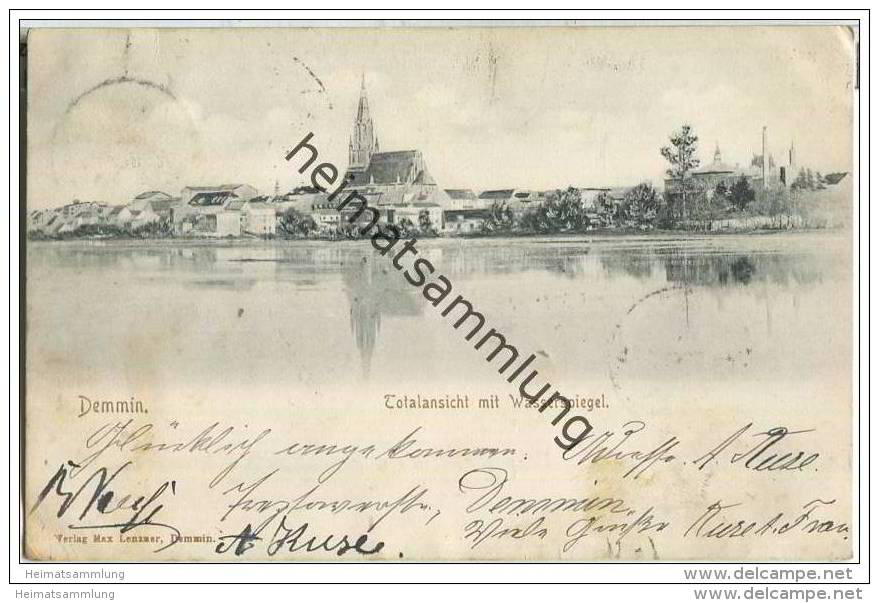 heimatsammlung.de
Demmin.
Totalansicht mit Wasserspiegel.
Glücklich angekommen. Adresse. A. Kuse.
Demmin
Viele Grüße Kuse u. Frau.
Verlag Max Lenzner, Demmin.
A Kuse.
Heimatsammlung
www.delcampe.net
Heimatsammlung
www.delcampe.net